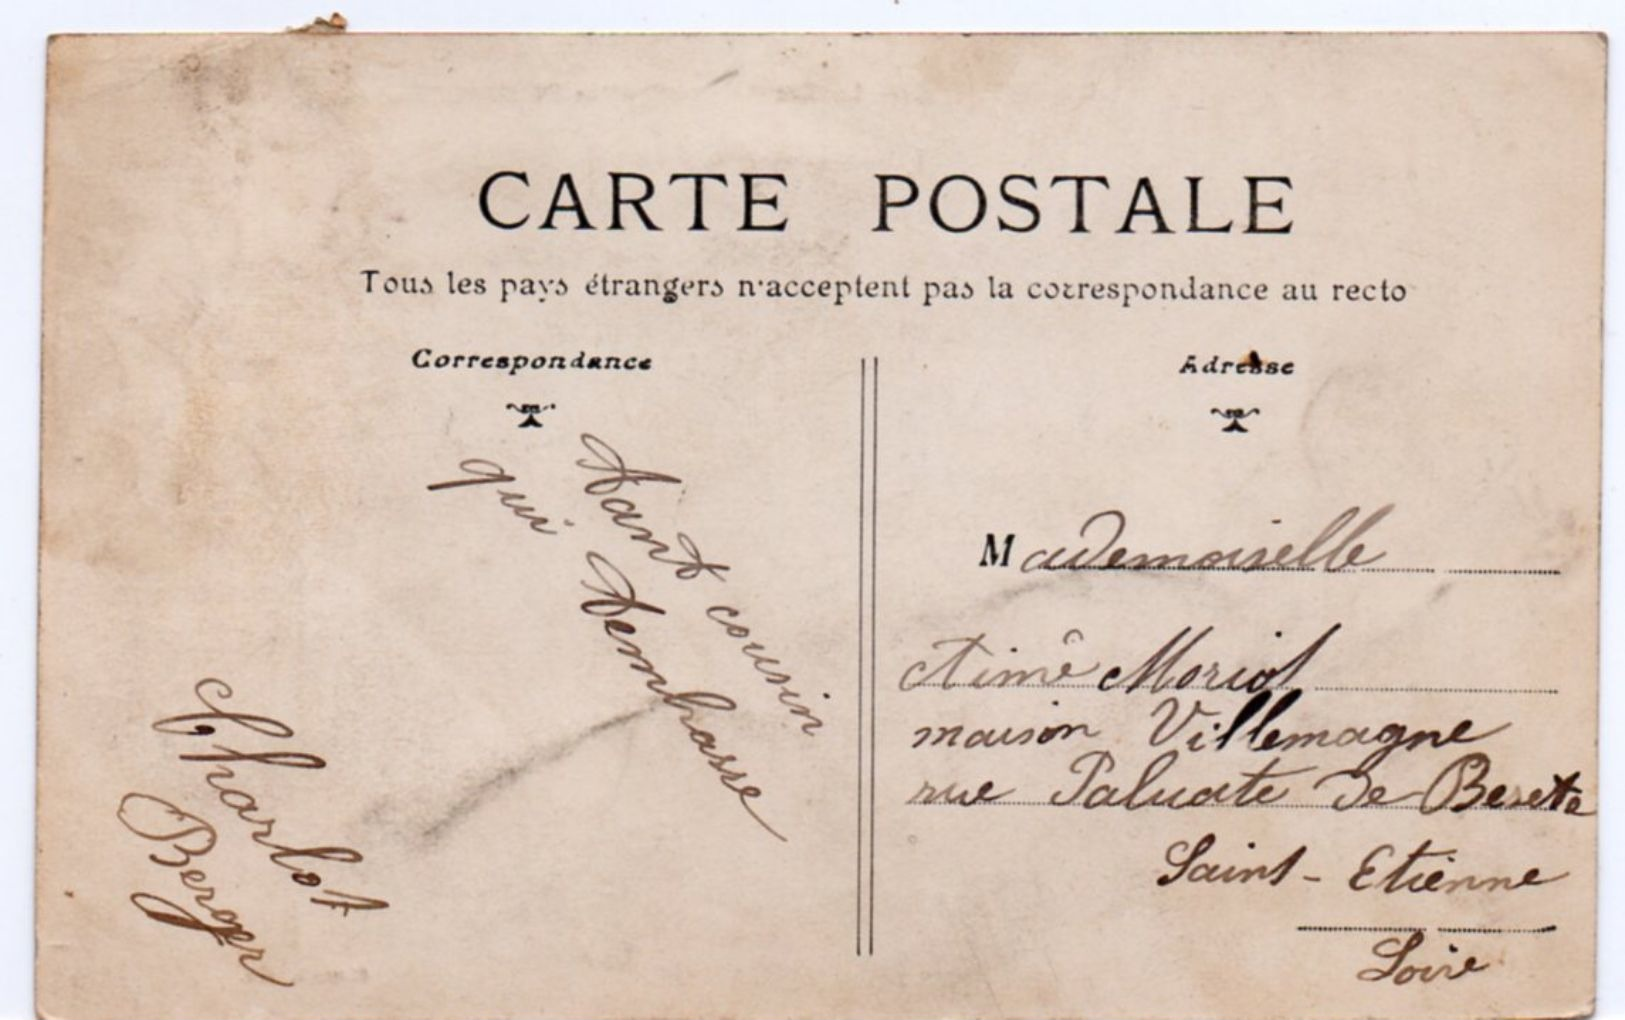 CARTE POSTALE
Tous les pays étrangers n'acceptent pas la correspondance au recto
Correspondance
Tant cousin
qui temhasse
Charlot
Berger
Adresse
Mademoiselle
Aimê Moriot
maison Villemagne
rue Paluate de
Saint-Etienne
Loire